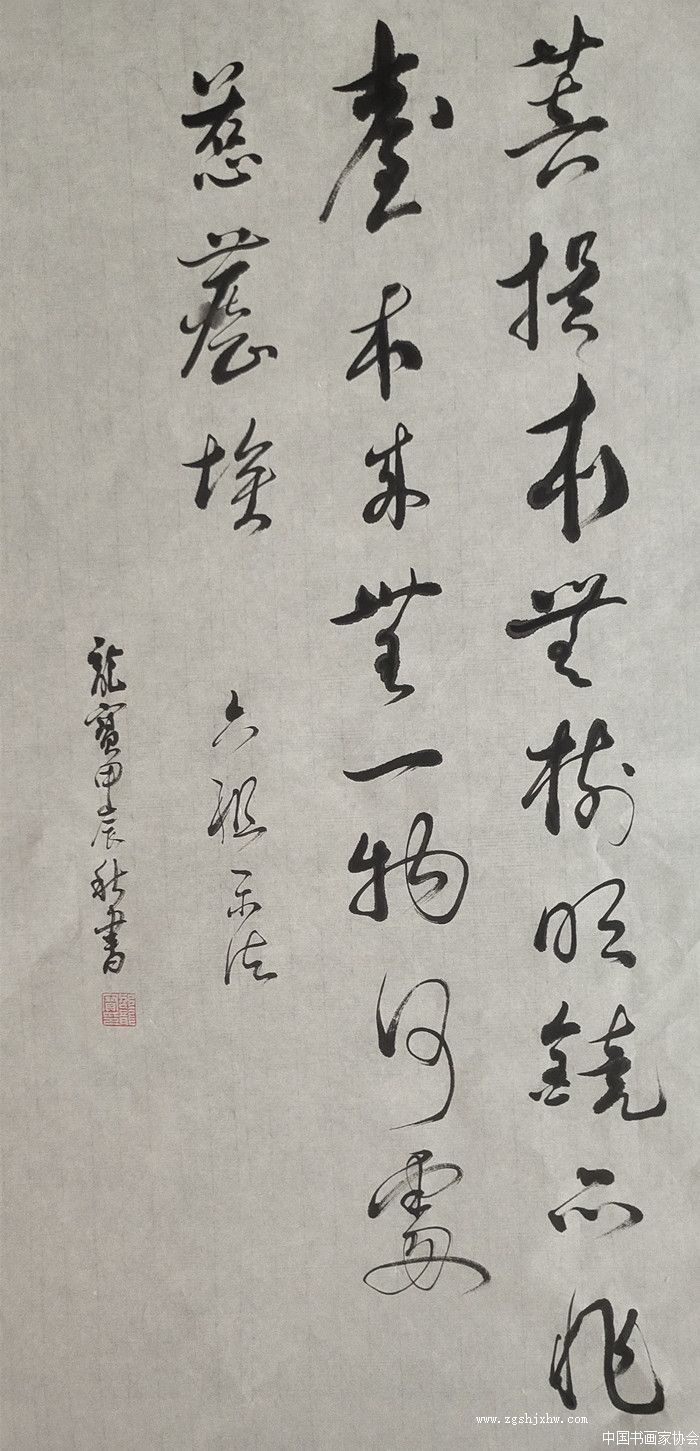 菩提本無樹明鏡亦非
臺本来無一物何處
惹塵埃
六祖示法
龍寶甲辰秋書
www.zgshjxhw.com
中国书画家协会